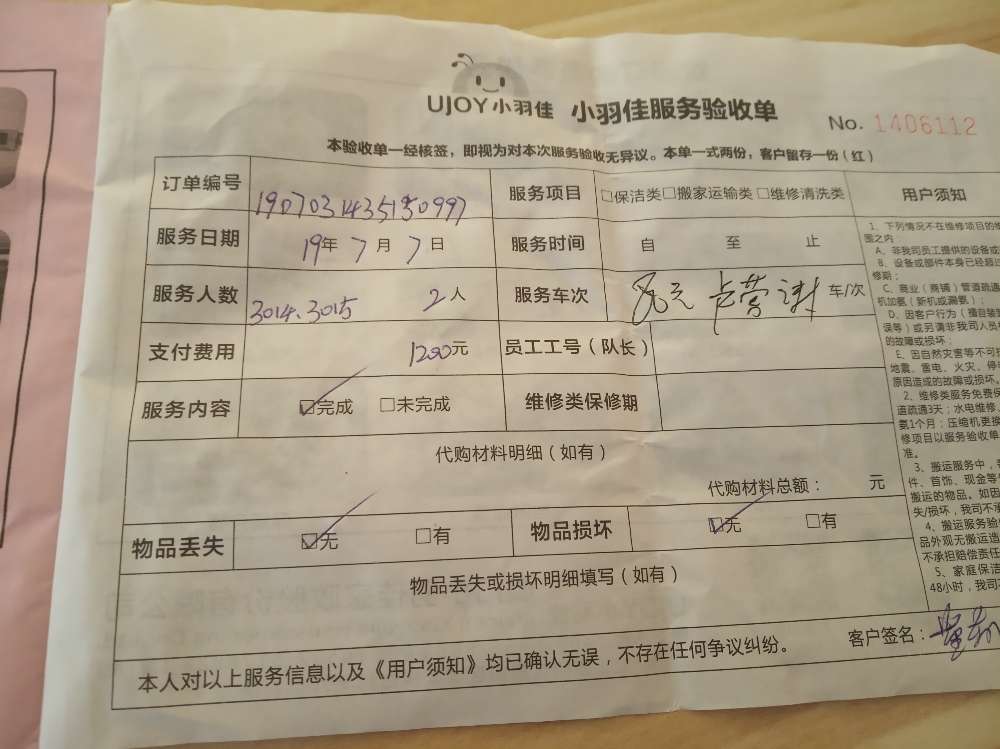 UJOY小羽佳 小羽佳服务验收单
No. 1406112
本验收单一经核签，即视为对本次服务验收无异议。本单一式两份，客户留存一份（红）
订单编号 19070314435150997 服务项目 □保洁类□搬家运输类□维修清洗类 用户须知
服务日期 19年7月7日 服务时间 自 至 止
服务人数 3014.3015 2人 服务车次 车/次
支付费用 1200元 员工工号（队长）
服务内容 ☑完成 □未完成 维修类保修期
代购材料明细（如有）
代购材料总额： 元
物品丢失 ☑无 □有 物品损坏 ☑无 □有
物品丢失或损坏明细填写（如有）
本人对以上服务信息以及《用户须知》均已确认无误，不存在任何争议纠纷。 客户签名：
1、下列情况不在维修项目的维
围之内
A、非我司员工提供的设备或
B、设备或部件本身已经超过
修期；
C、商业（商铺）管道疏通
机加氨（新机或漏氨）；
D、因客户行为（擅自装
误等）或另请非我司人员
的故障或损坏；
E、因自然灾害等不可
地震、雷电、火灾、停
原因造成的故障或损坏。
2、维修类服务免费保
道疏通3天；水电维修
氨1个月；压缩机更换
修项目以服务验收单
准。
3、搬运服务中，
件、首饰、现金等
搬运的物品。如因
失/损坏，我司不承
4、搬运服务验
品外观无搬运造
不承担赔偿责任
5、家庭保洁
48小时，我司